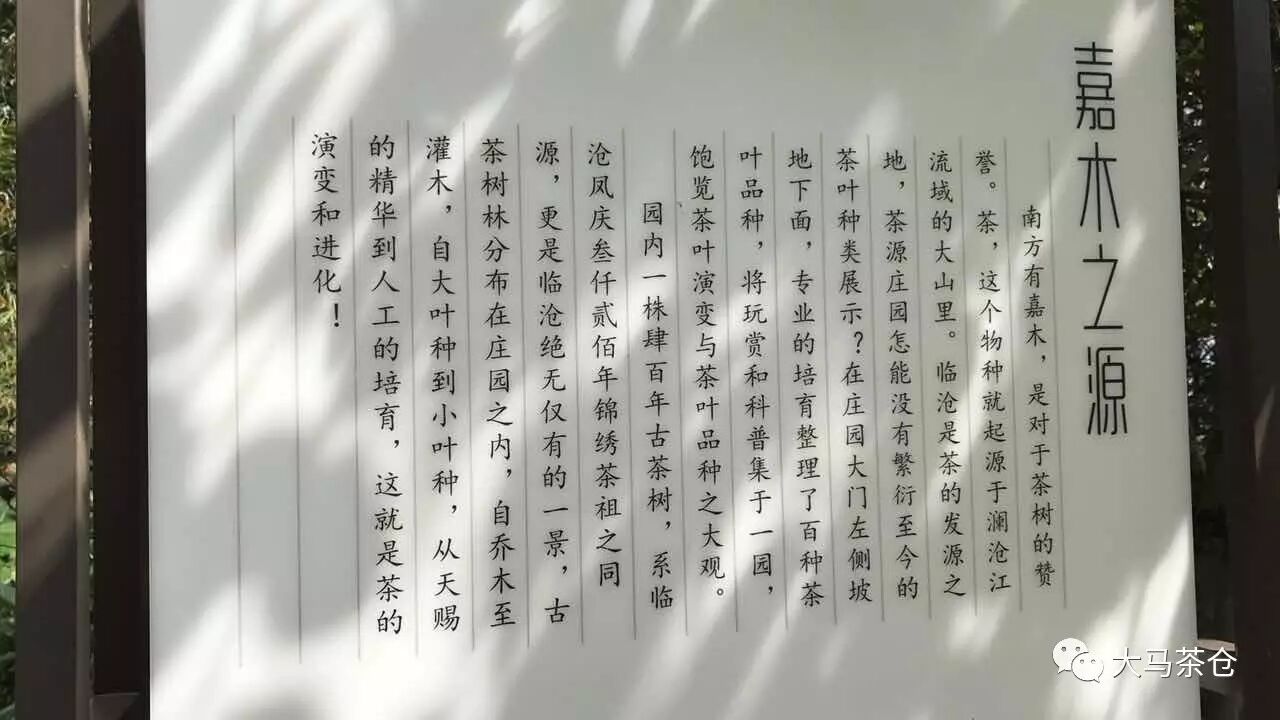 嘉木之源
南方有嘉木，是对于茶树的赞
誉。茶，这个物种就起源于澜沧江
流域的大山里。临沧是茶的发源之
地，茶源庄园怎能没有繁衍至今的
茶叶种类展示？在庄园大门左侧坡
地下面，专业的培育整理了百种茶
叶品种，将玩赏和科普集于一园，
饱览茶叶演变与茶叶品种之大观。
园内一株肆百年古茶树，系临
沧凤庆叁仟贰佰年锦绣茶祖之同
源，更是临沧绝无仅有的一景，古
茶树林分布在庄园之内，自乔木至
灌木，自大叶种到小叶种，从天赐
的精华到人工的培育，这就是茶的
演变和进化！
大马茶仓